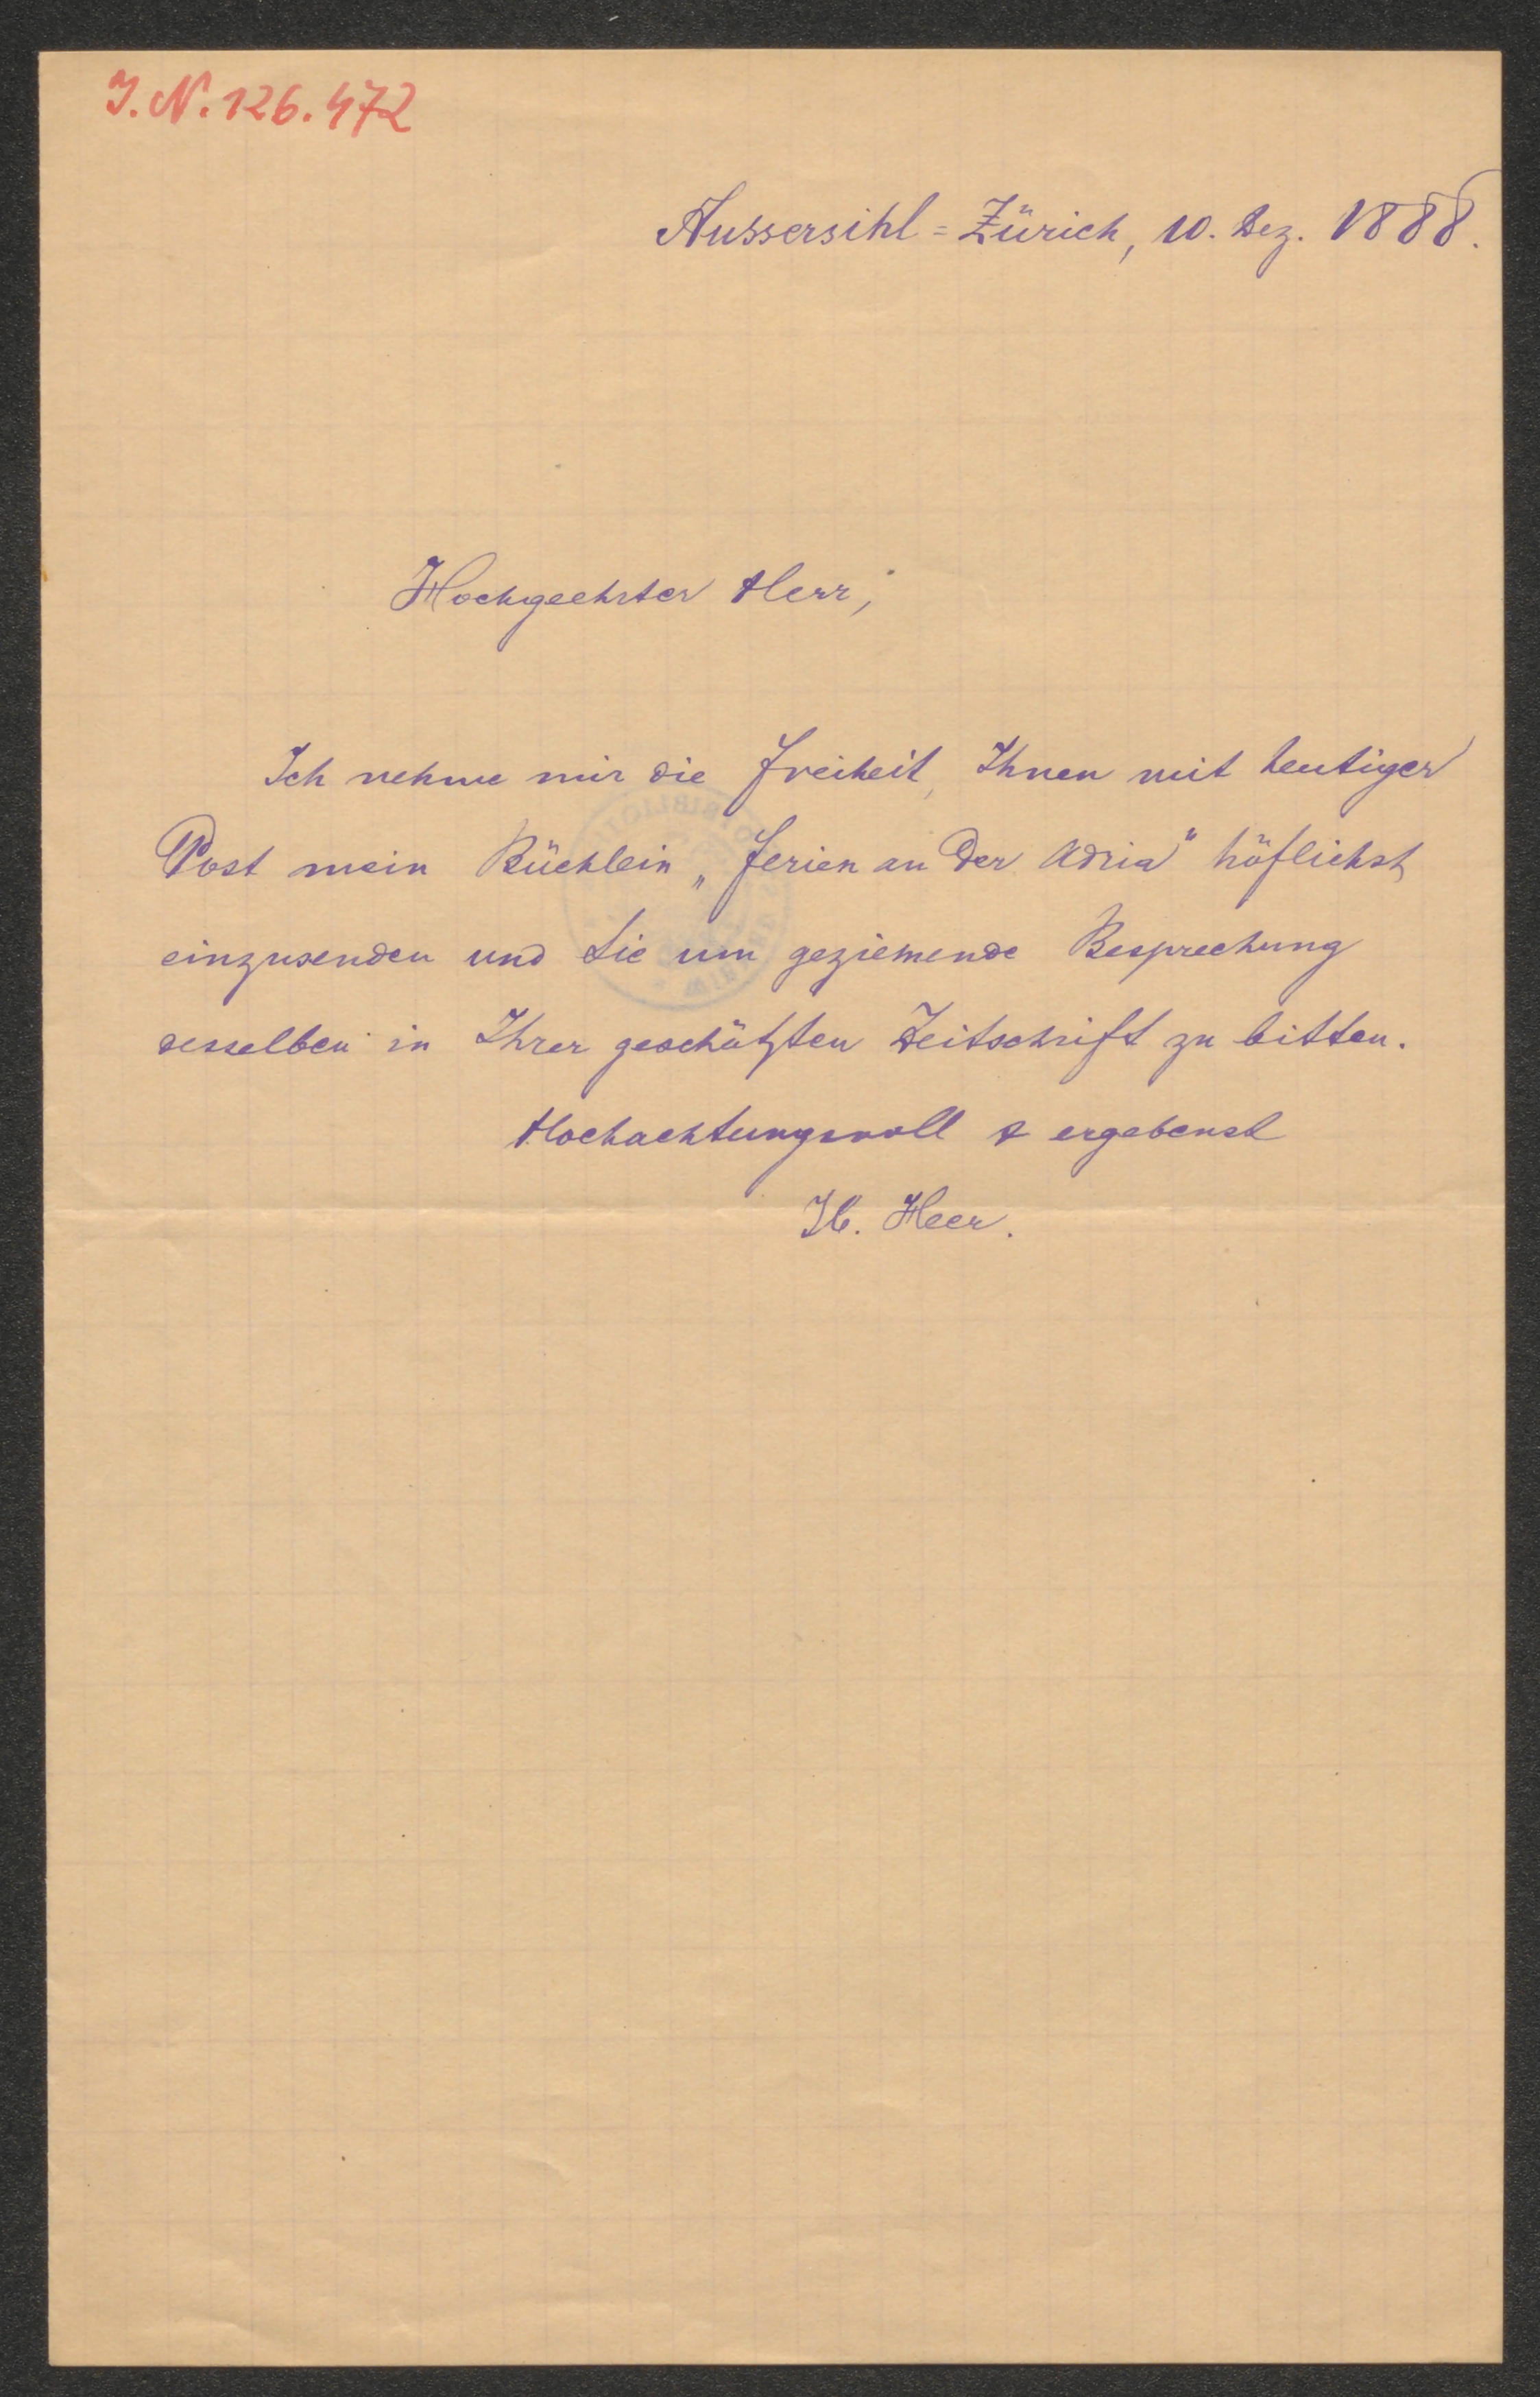 I.N. 126.472
Aussersihl = Zürich, 10. Dez. 1888.
Hochgeehrter Herr,
Ich nehme mir die Freiheit, Ihnen mit heutiger
Post mein Büchlein „Ferien an der Adria" höflichst
einzusenden und Sie um geziemende Besprechung
desselben in Ihrer geschätzten Zeitschrift zu bitten.
Hochachtungsvoll & ergebenst
Heer.